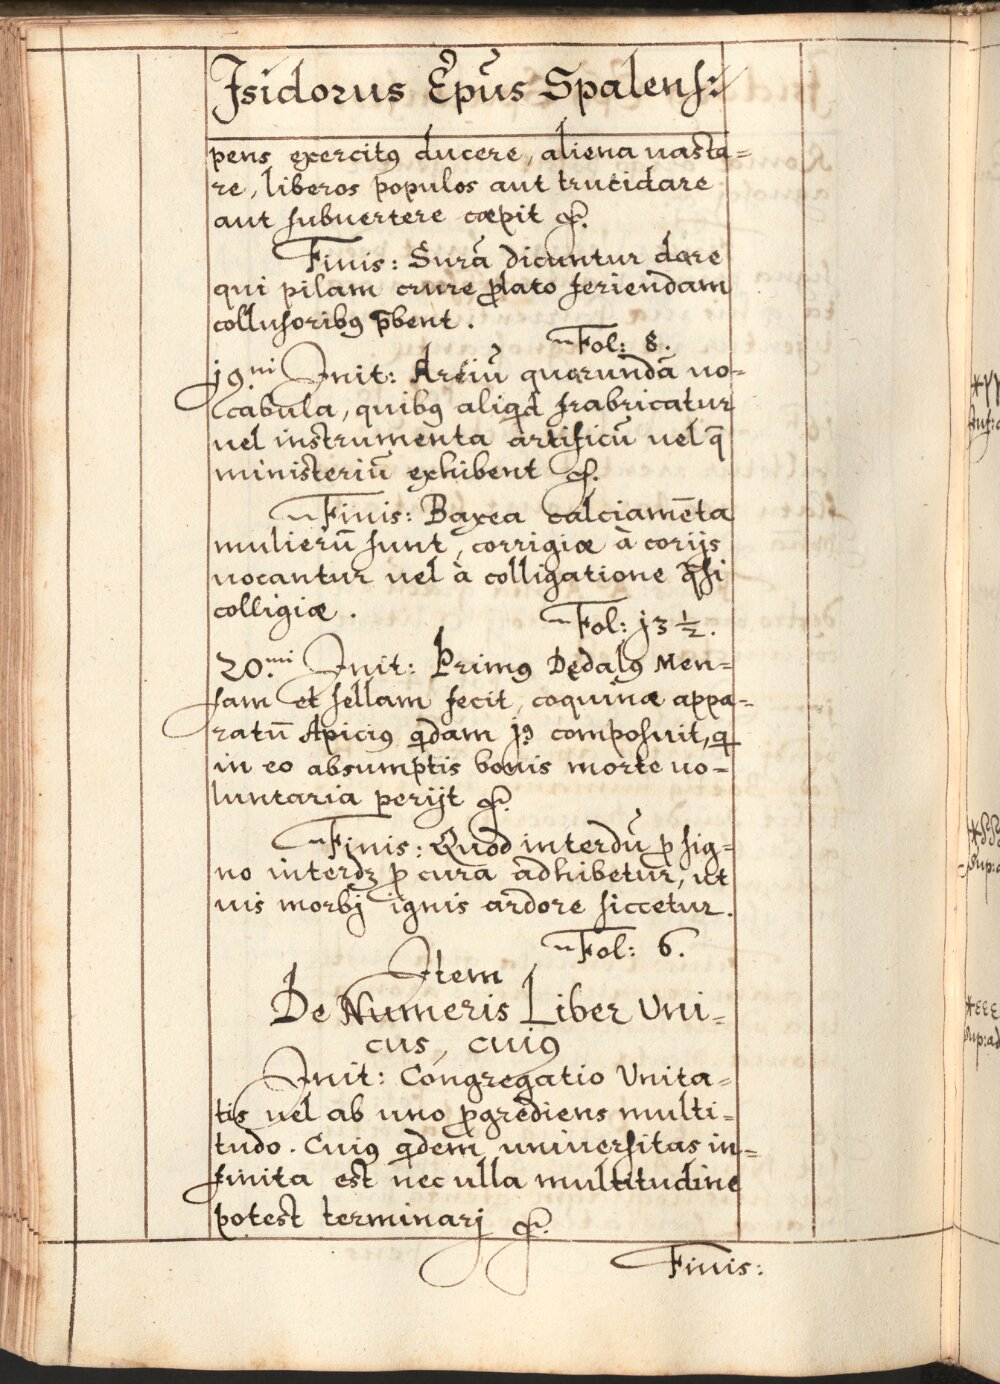 Isidorus Ep̃us Spalens:
pens exercitꝰ ducere, aliena uasta=
re, liberos populos aut trucidare
aut subuertere cœpit &.
Finis: Surã dicuntur dare
qui pilam crure ꝓlato feriendam
collusoribꝰ p̄bent.
Fol: 8.
19.ni Init: Artiũ quarundã uo=
cabula, quibꝰ aliqd fabricatur
uel instrumenta artificũ uel q̄
ministeriũ exhibent &.
Finis: Baxea calciamẽta
mulierũ sunt, corrigiæ à corijs
uocantur uel à colligatione q̄si
colligiæ.
Fol: 13 ½.
20.mi Init: Primꝰ Dędalꝰ Men=
sam et sellam fecit, coquinæ appa=
ratũ Apiciꝰ qdam 1º composuit, q
in eo absumptis bonis morte uo=
luntaria perijt &.
Finis: Quod interdũ ꝓ sig=
no interdꝫ ꝓ cura adhibetur, ut
uis morbj ignis ardore siccetur.
Fol: 6.
Item
De Numeris Liber Uni=
cus, cuiꝰ
Init: Congregatio Unita=
tis uel ab uno ꝓgrediens multi=
tudo. Cuiꝰ qdem uniuersitas in=
finita est nec ulla multitudine
potest terminarj &.
Finis: